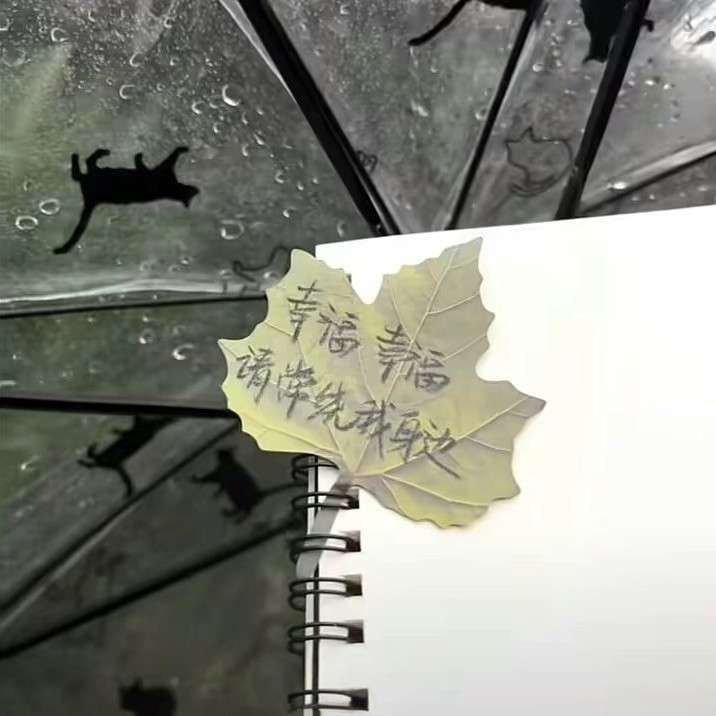 幸福 幸福
请常绕我身边